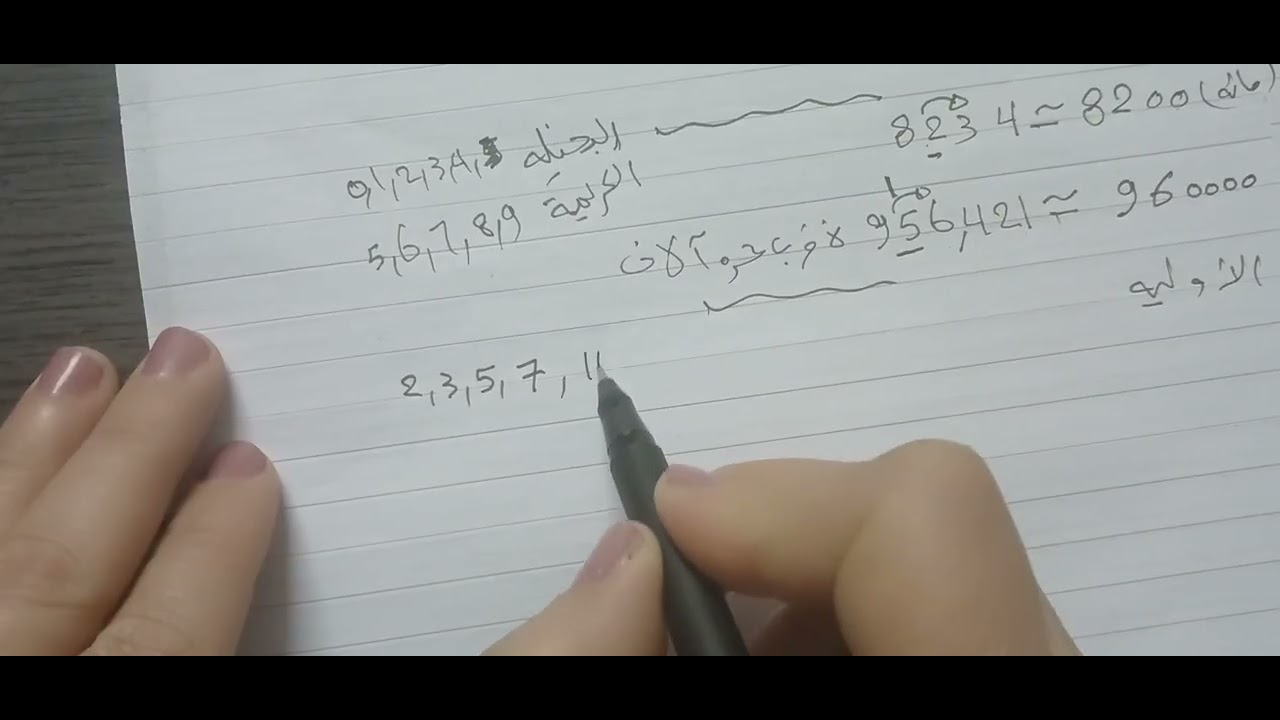 8234 ≈ 8200 (مائة)
0,1,2,3,4, البخيلة
956,421 ≈ 960000 لأقرب عشرة آلاف
5,6,7,8,9 الكريمة
الأولية
2,3,5,7, 11